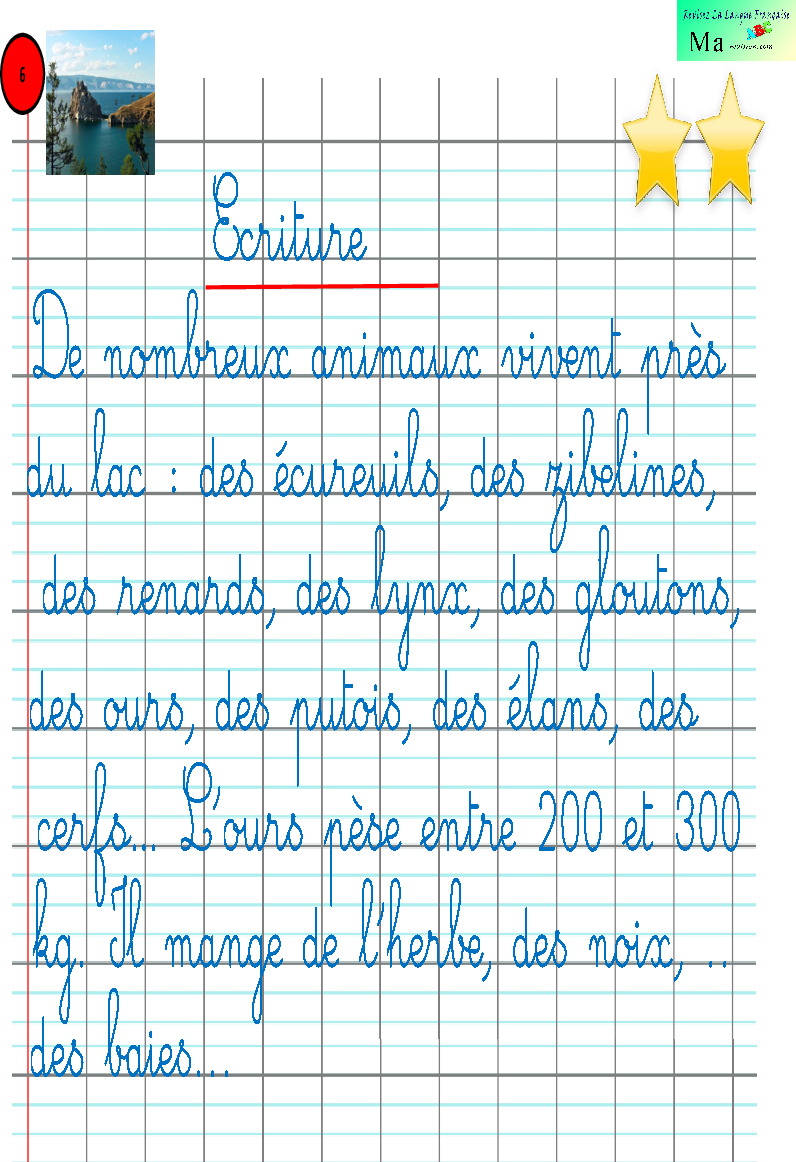 6
Revisez La Langue Française
Ma
revision.com
Ecriture
De nombreux animaux vivent près
du lac : des écureuils, des zibelines,
des renards, des lynx, des gloutons,
des ours, des putois, des élans, des
cerfs... L'ours pèse entre 200 et 300
kg. Il mange de l'herbe, des noix, ..
des baies...